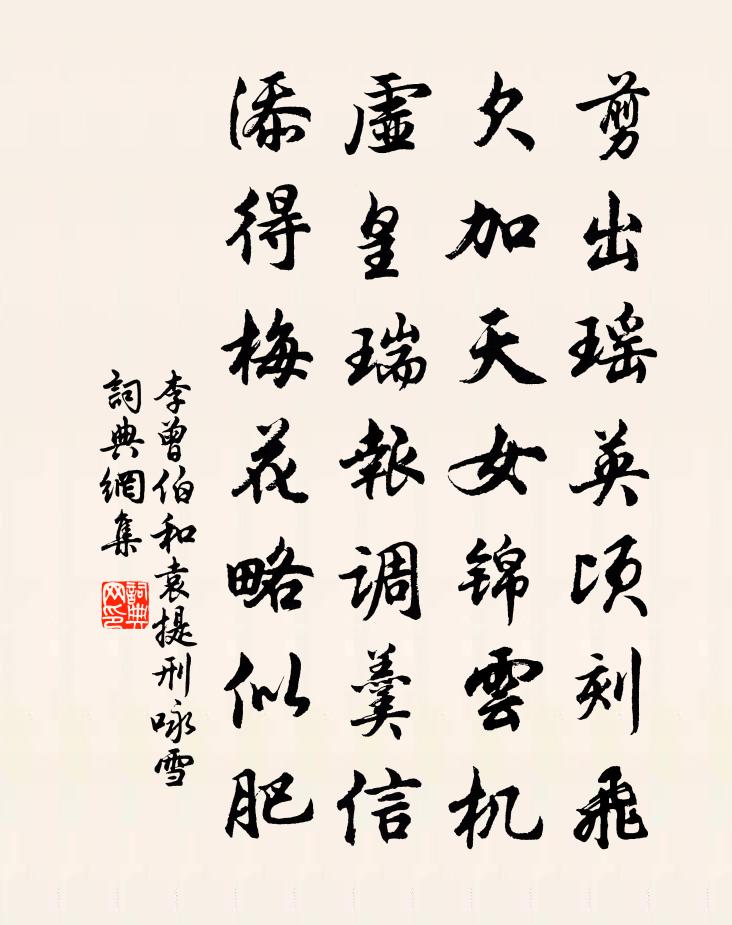 剪出瑶英顷刻飛
久加天女锦雲机
虛皇瑞報调羹信
添得梅花略似肥
李曾伯和袁提刑咏雪
詞典網集
詞典网印